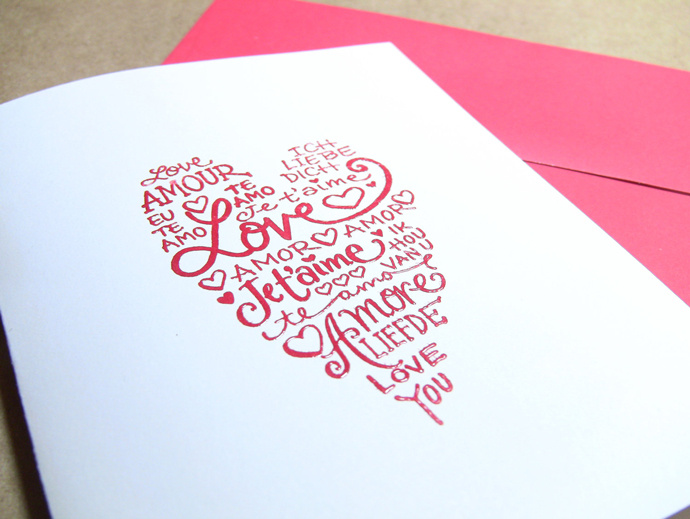 Love
AMOUR
EU
TE
AMO
TE
AMO
ICH
LIEBE
DICH
Je t'aime
Love
AMOR AMOR
Je t'aime
IK
HOU
VAN U
te amo
Amore
LIEFDE
LOVE
YOU